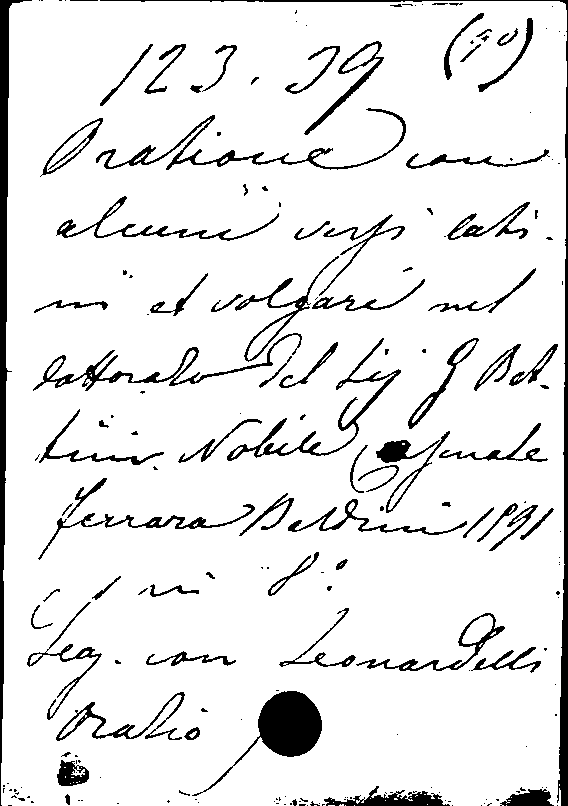 123. 39 (90)
Oratione con
alcuni versi lati-
ni et volgari nel
dottorato del Sig G Bet-
tini Nobile
Ferrara Baldini 1591
in 8°
Leg. con Leonardelli
Oratio